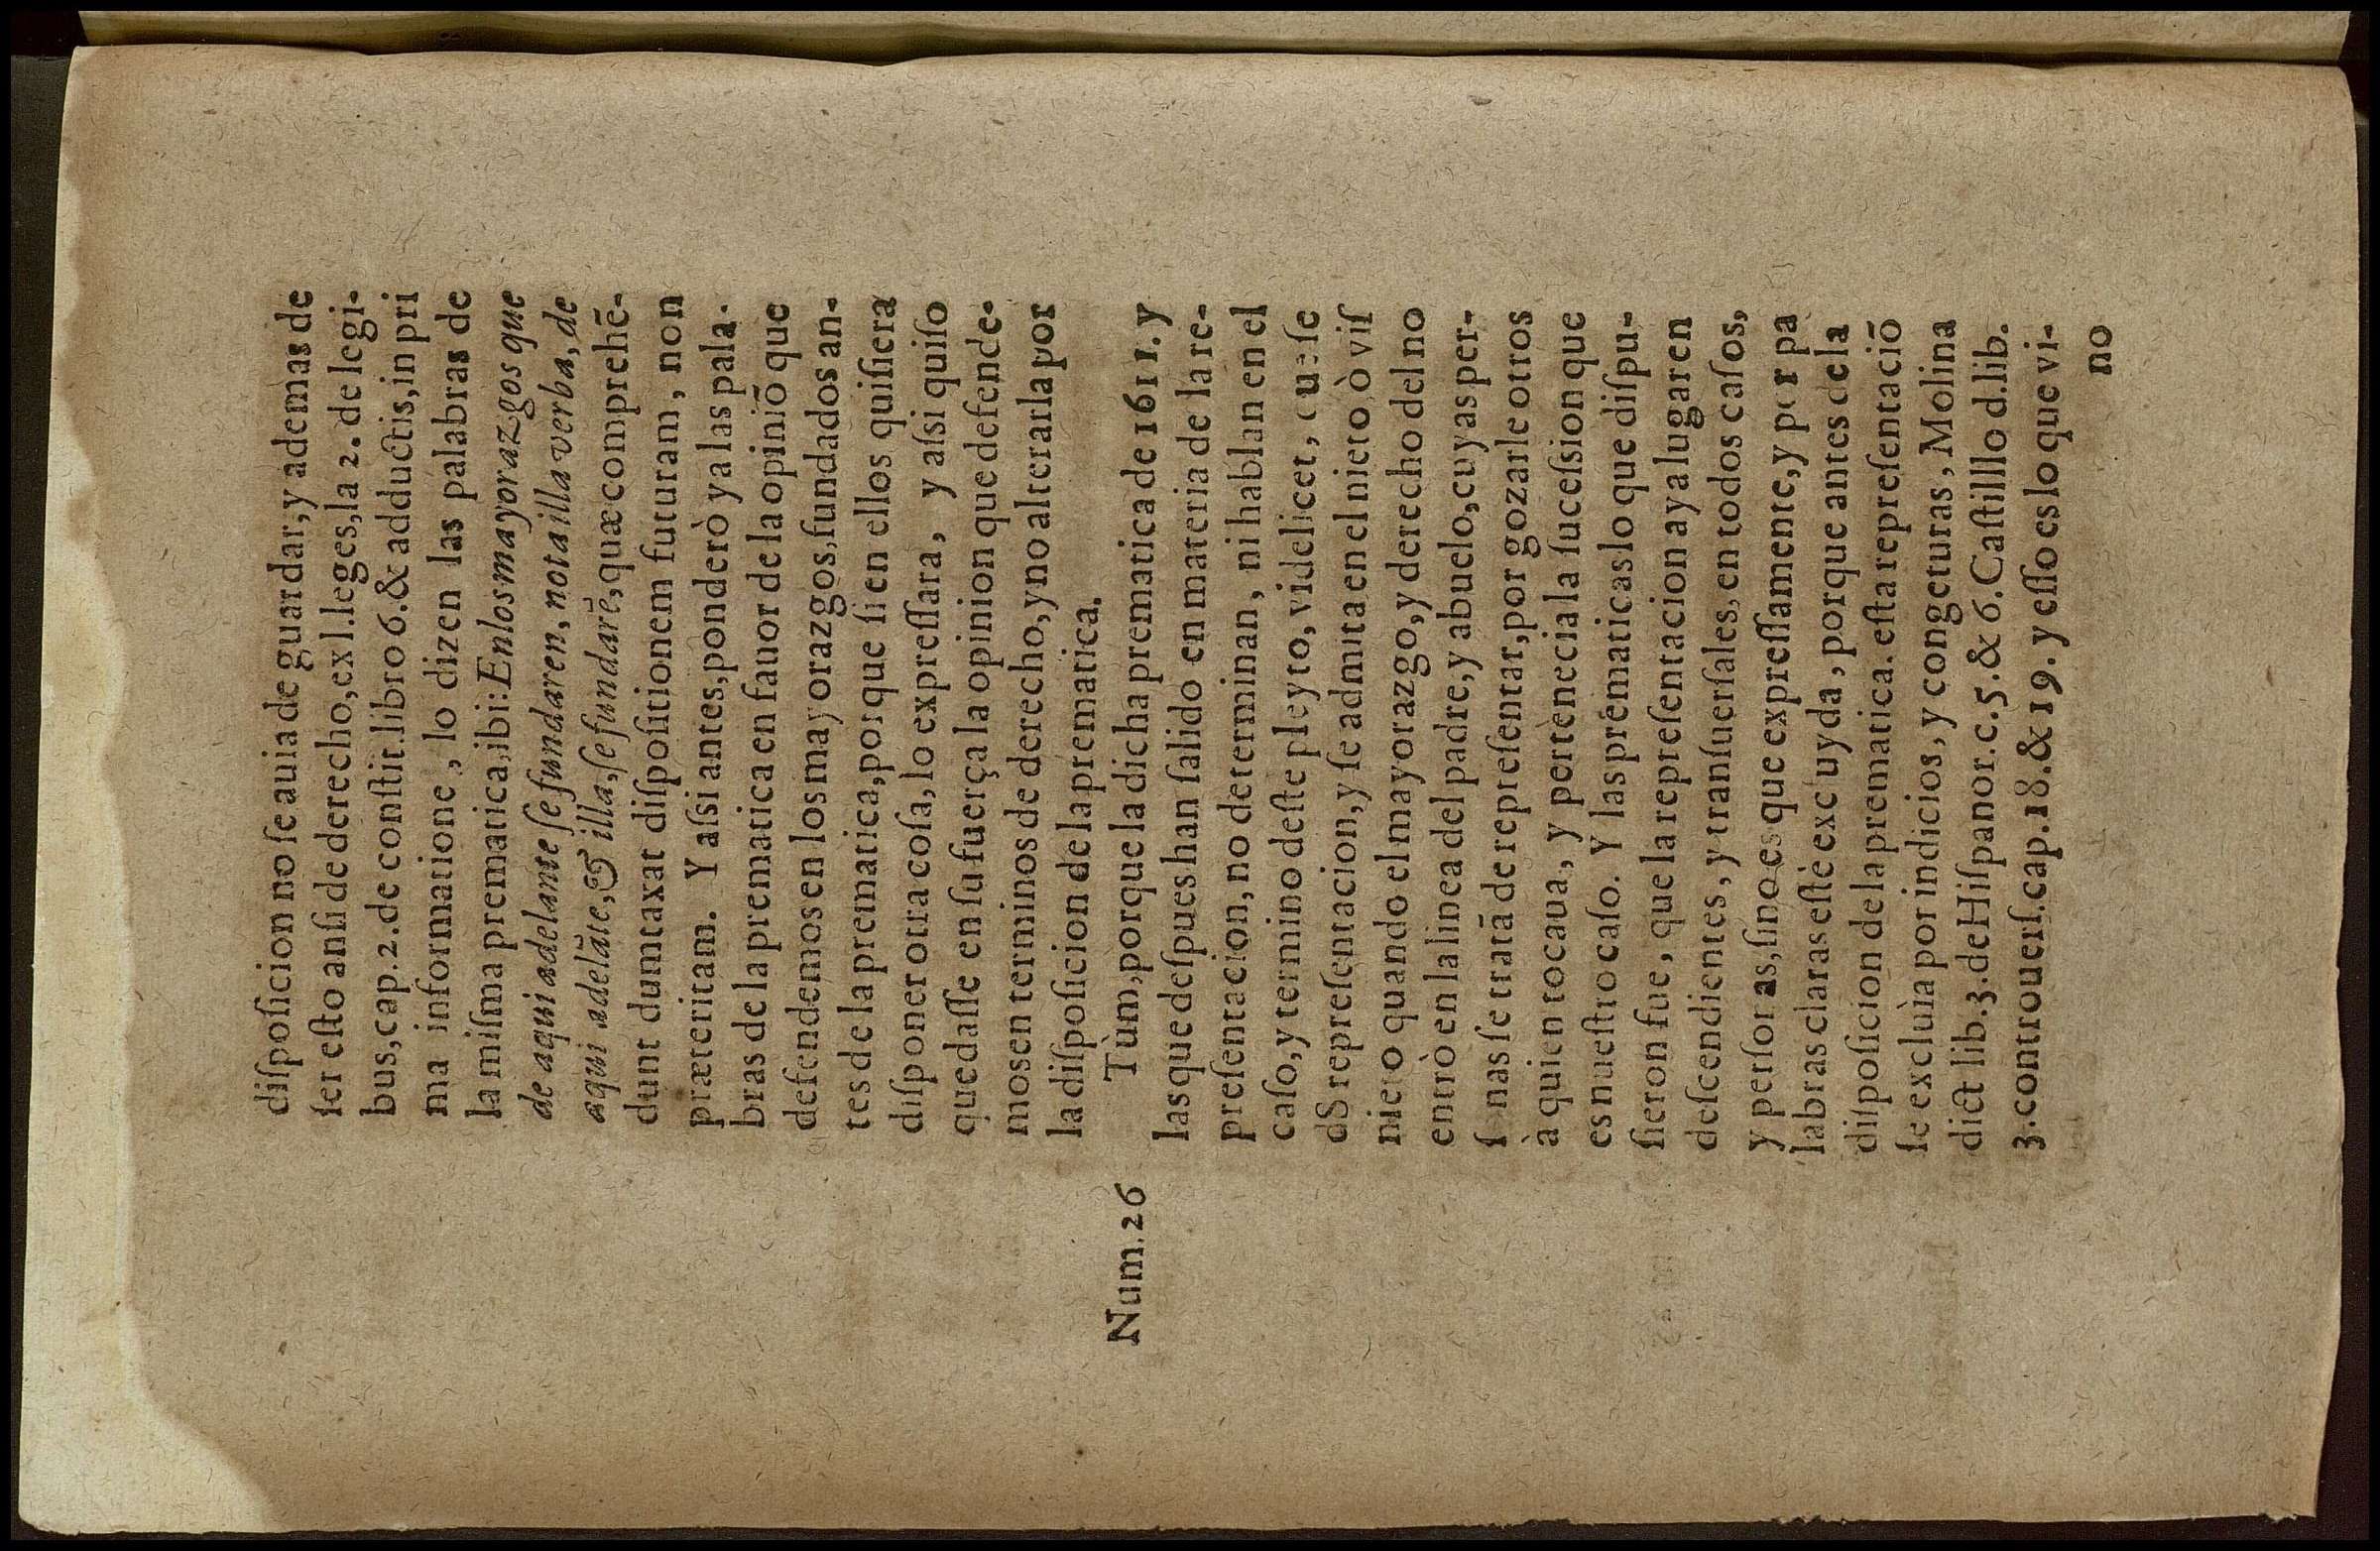 diſpoſicion no ſe auia de guardar, y ademas de
ſer eſto anſi de derecho, ex l. leges, la 2. de legi-
bus, cap. 2. de conſtit. libro 6. & adductis, in pri
ma informatione, lo dizen las palabras de
la miſma prematica, ibi: En los mayorazgos que
de aqui adelante ſe fundaren, nota illa verba, de
aqui adelãte, & illa, ſe fundarẽ, quæ comprehẽ-
dunt dumtaxat diſpoſitionem futuram, non
præteritam. Y aſsi antes, ponderò ya las pala-
bras de la prematica en fauor de la opiniõ que
defendemos en los mayorazgos, fundados an-
tes de la prematica, porque ſi en ellos quiſiera
diſponer otra coſa, lo expreſſara, y aſsi quiſo
quedaſſe en ſu fuerça la opinion que defende-
mos en terminos de derecho, y no alterarla por
la diſpoſicion de la prematica.
Num. 26 Tùm, porque la dicha prematica de 1611. y
las que deſpues han ſalido en materia de la re-
preſentacion, no determinan, ni hablan en el
caſo, y termino deſte pleyto, videlicet, que ſe
dS repreſentacion, y ſe admita en el nieto ò viſ
nieto quando el mayorazgo, y derecho del no
entrò en la linea del padre, y abuelo, cuyas per-
ſ nas ſe tratã de repreſentar, por gozarle otros
à quien tocaua, y pertenecia la ſuceſsion que
es nueſtro caſo. Y las prematicas lo que diſpu-
ſieron fue, que la repreſentacion aya lugar en
deſcendientes, y tranſuerſales, en todos caſos,
y perſonas, ſino es que expreſſamente, y por pa
labras claras eſtè excluyda, porque antes de la
diſpoſicion de la prematica. eſta repreſentaciõ
ſe excluìa por indicios, y congeturas, Molina
dict lib. 3. de Hiſpanor. c. 5. & 6. Caſtilllo d. lib.
3. controuerſ. cap. 18. & 19. y eſſo es lo que vi-
no